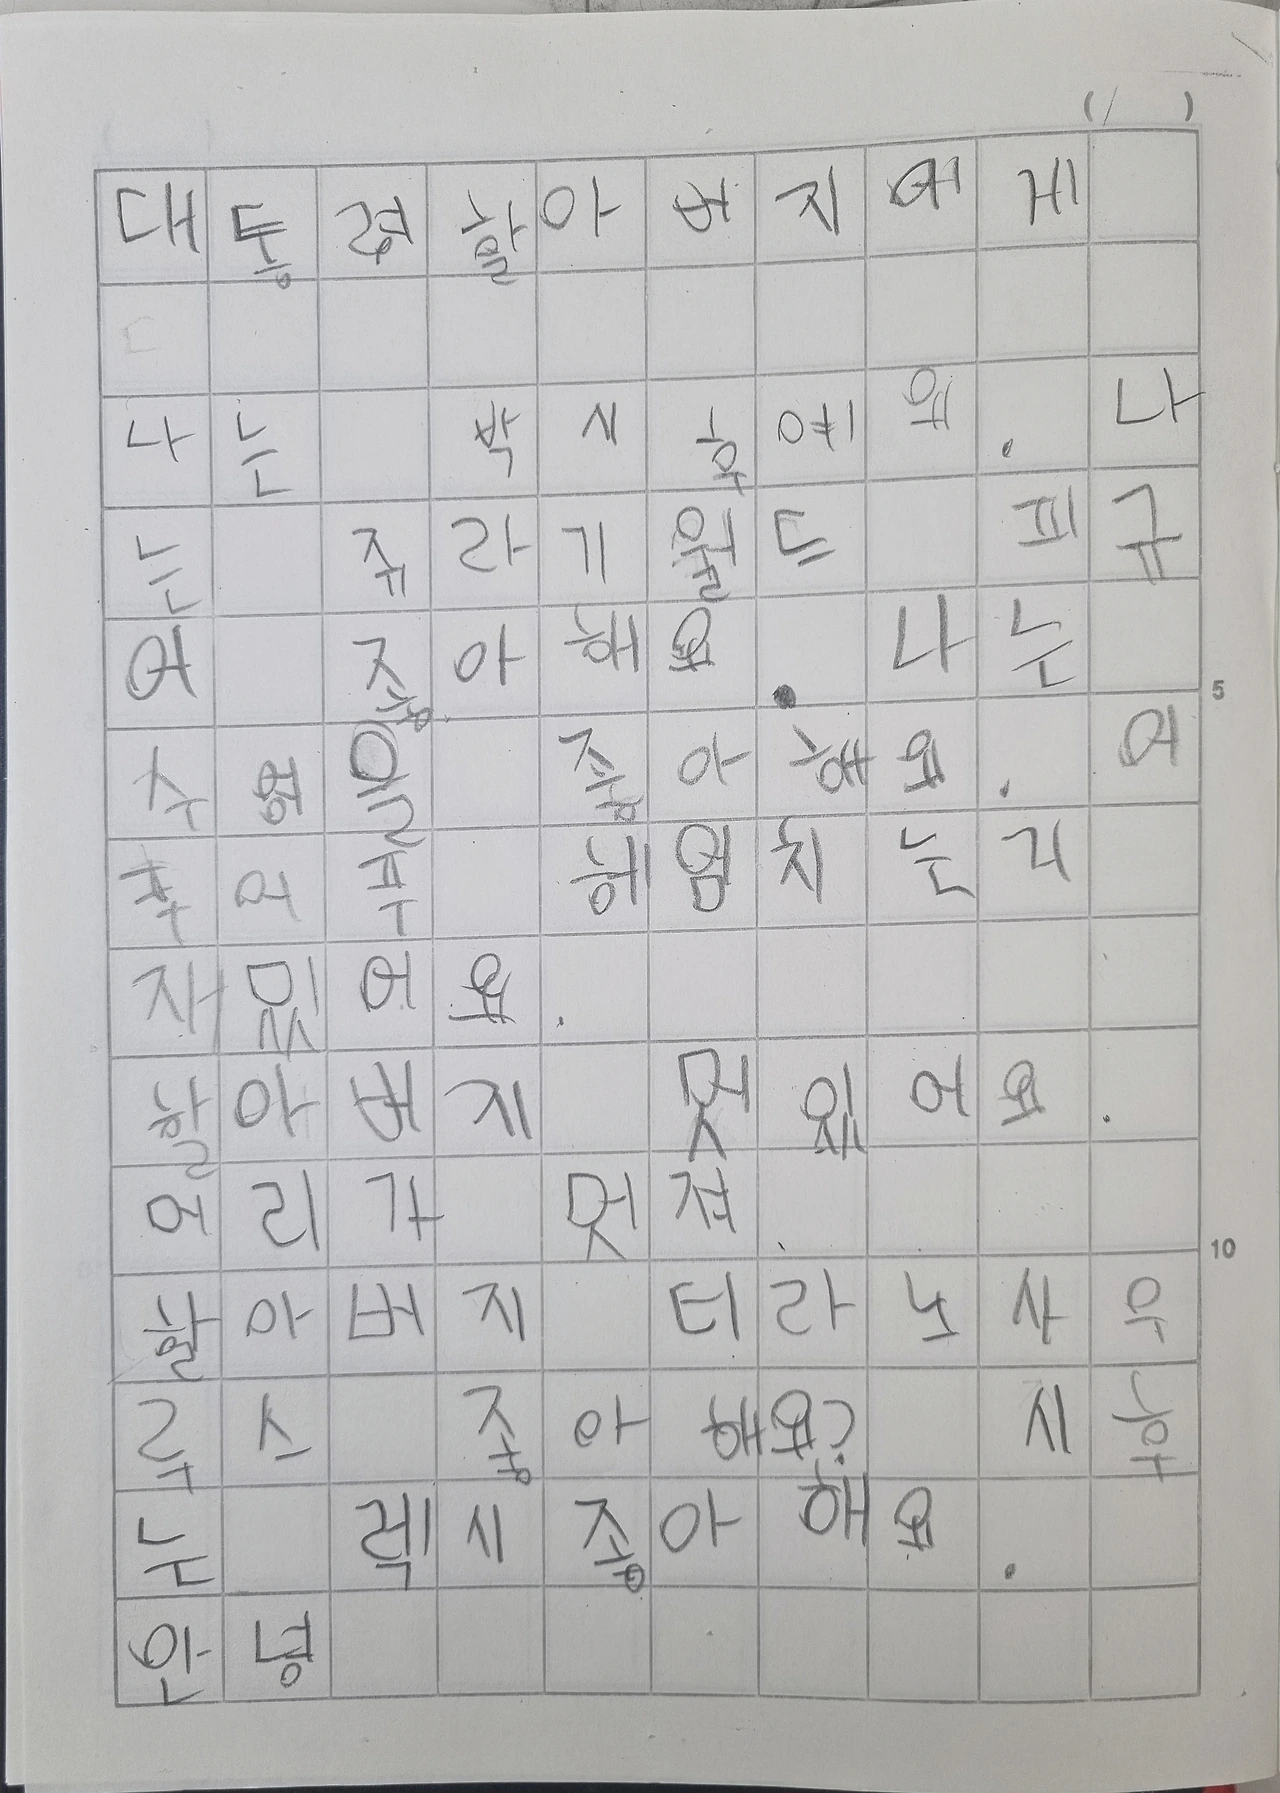 ( / )
대통령할아버지에게
나는 박시후예요. 나
는 쥬라기월드 피규
어 좋아해요. 나는
수영을 좋아해요. 어
푸어푸 헤엄치는거
재밌어요.
할아버지 멋있어요.
머리가 멋져.
할아버지 티라노사우
루스 좋아해요? 시후
는 렉시좋아해요.
안녕
5
10